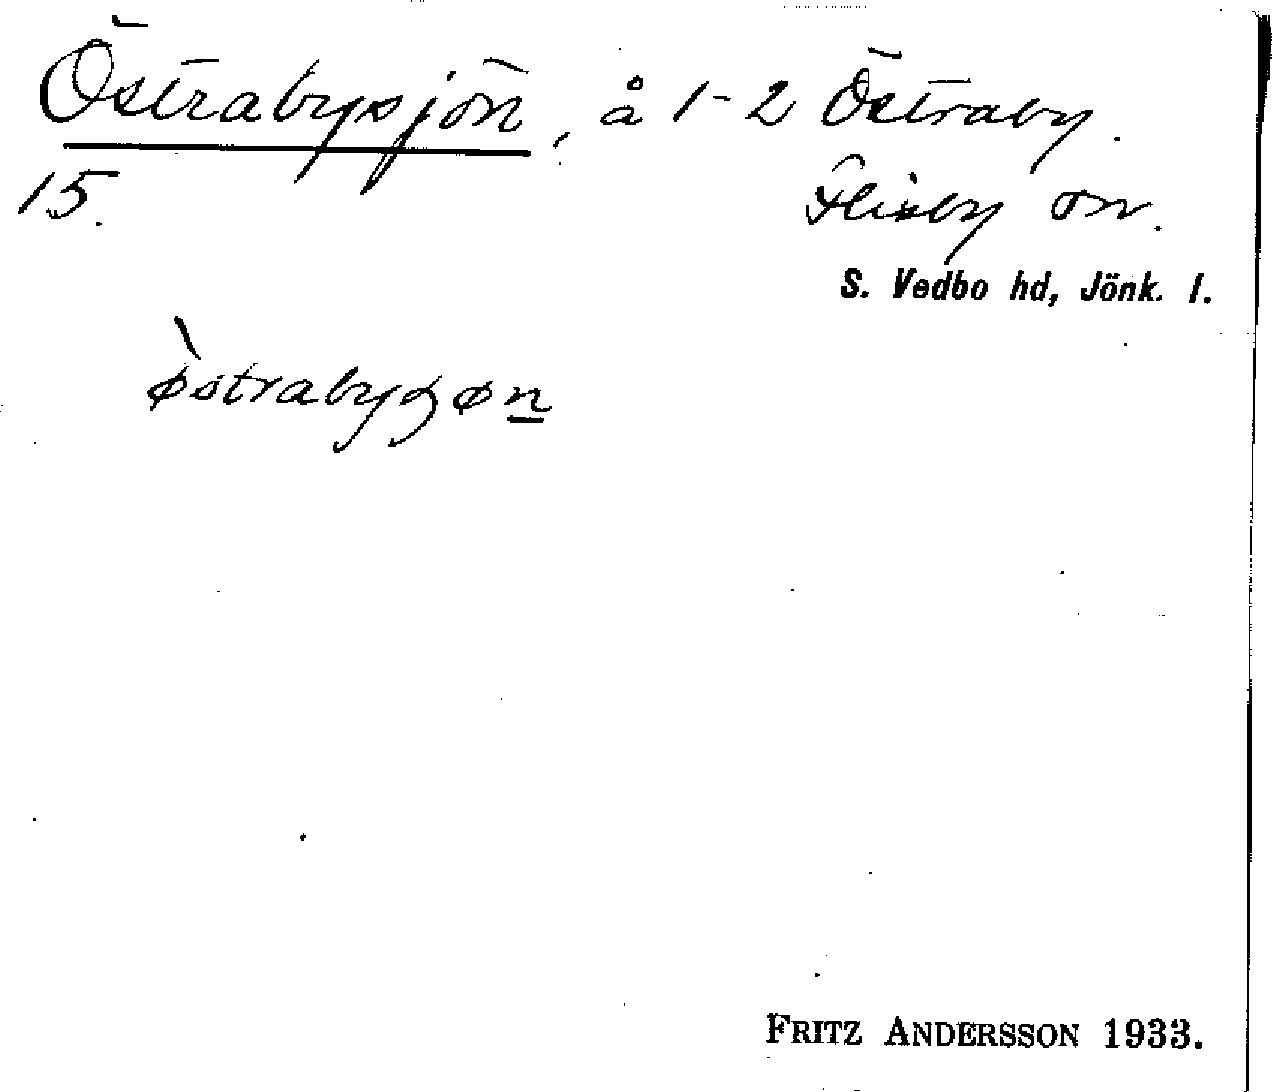 Östrabysjön, å 1-2 Östraby.
15.
Flisby sn.
S. Vedbo hd, Jönk. l.
østrabyʒøn
FRITZ ANDERSSON 1933.